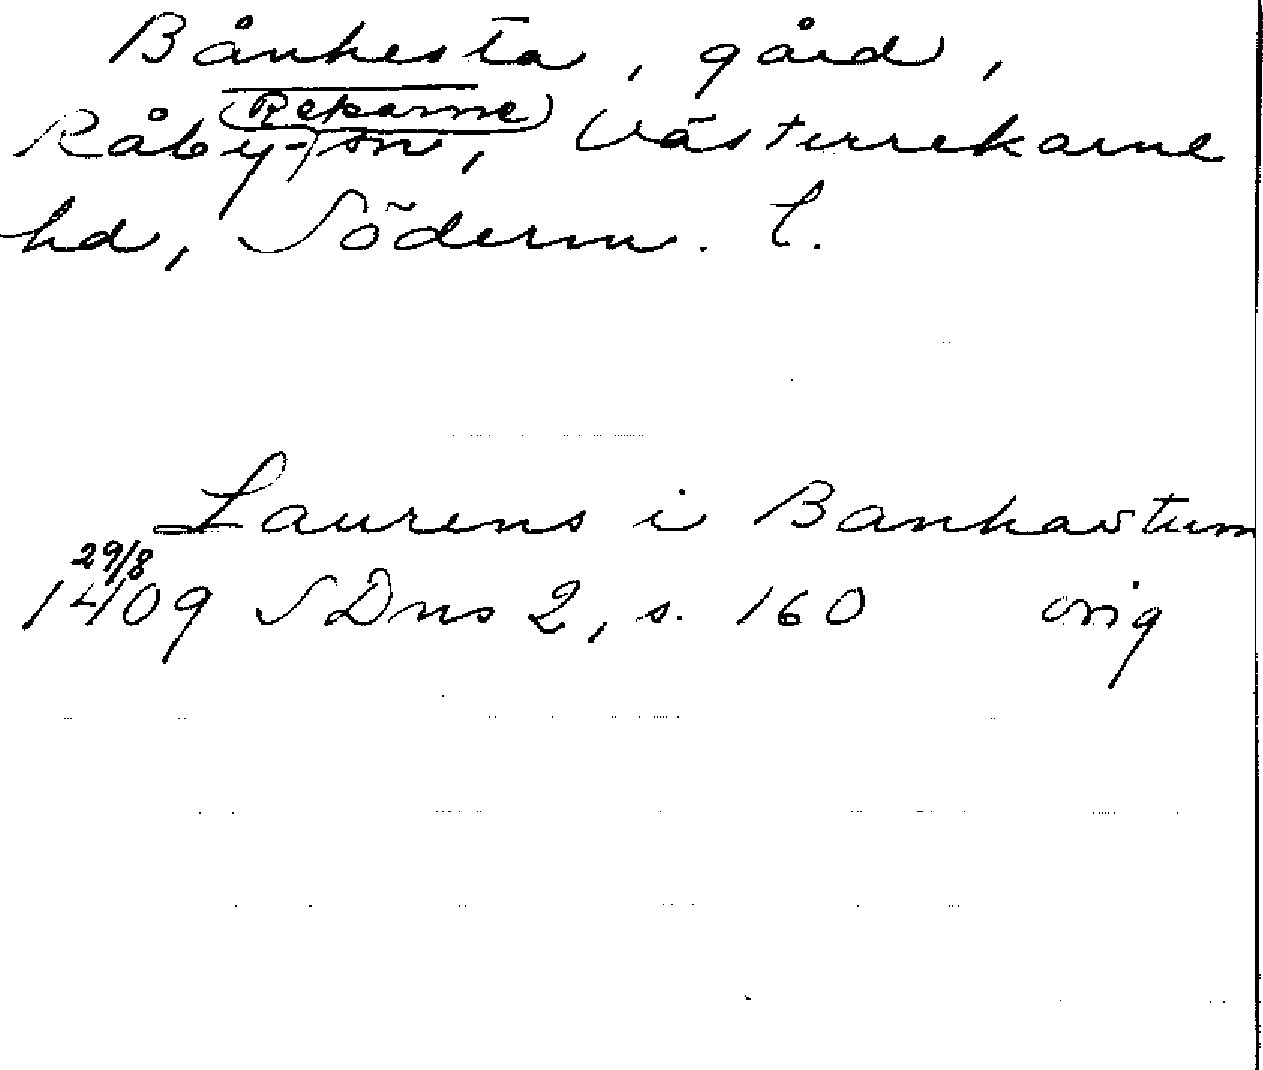 Bånkesta, gård,
Råby-Rekarne sn, Västerrekarne
hd, Söderm. l.
Laurens i Bankastum
29/8
1409 SDns 2, s. 160 orig